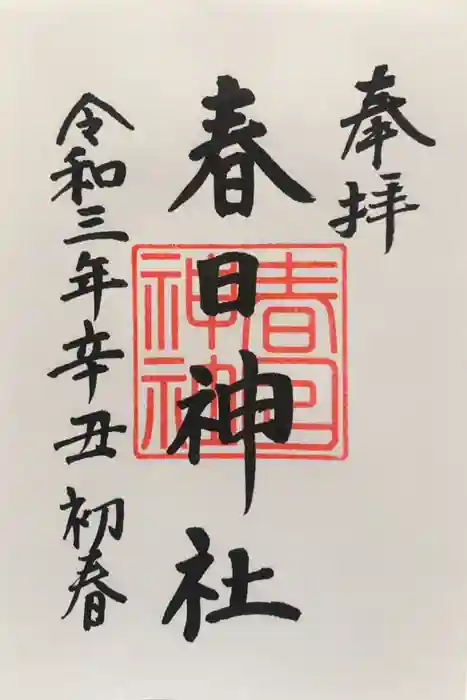 奉拝
春日神社
令和三年辛丑初春
春日
神社